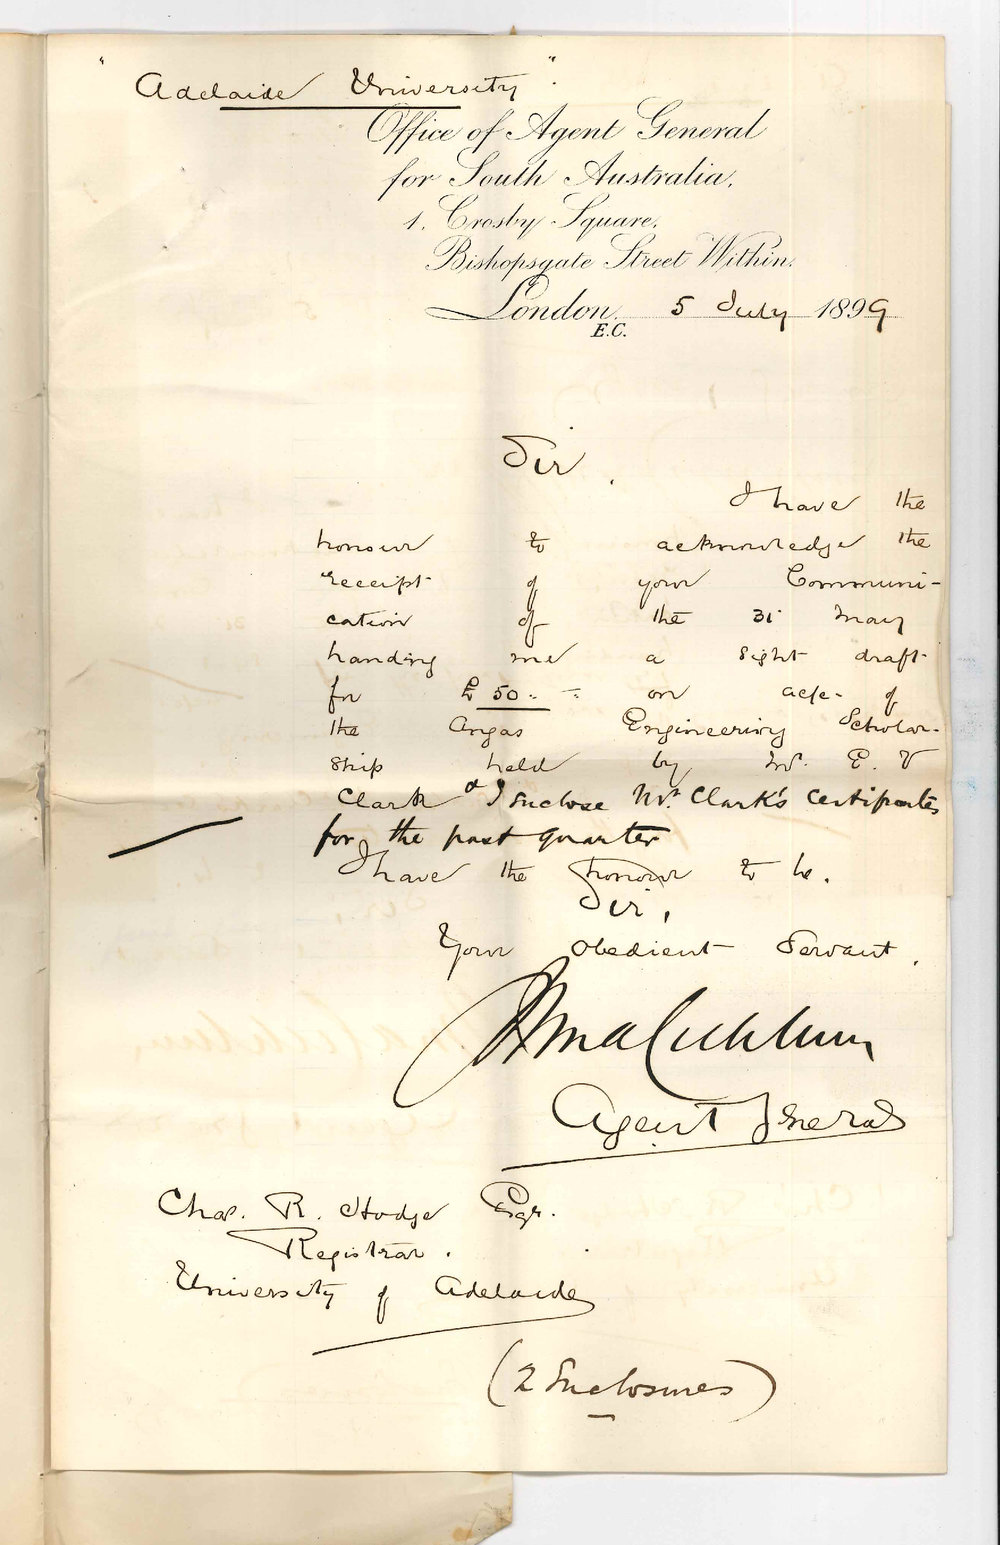 "Adelaide University".
Office of Agent General
for South Australia,
1, Crosby Square,
Bishopsgate Street Within,
London, 5 July 1899
E.C.
Sir,
I have the
honour to acknowledge the
receipt of your Communi-
cation of the 31 May
handing me a sight draft
for £50 " - on acc/- of
the Angas Engineering Scholar-
ship held by Mr. E. V
Clark & I enclose Mr. Clark's certificates
for the past quarter
I have the honour to be.
Sir,
Your obedient Servant.
Agent General
Chas. R. Hodge Esqr.
Registrar.
University of Adelaide
(2 Enclosures)